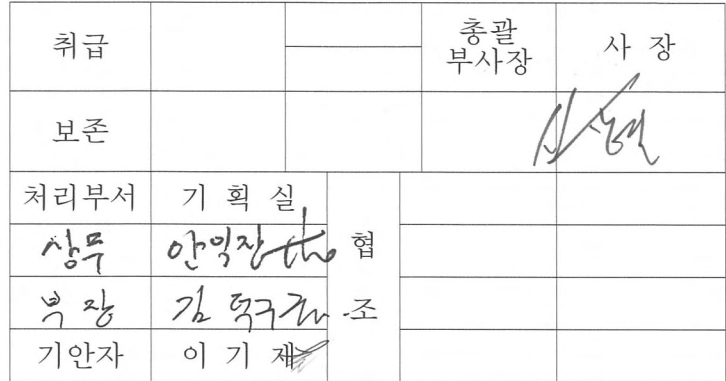 취급
총괄
부사장
사 장
보존
처리부서 기 획 실
상무 안익장
협
부장 김덕구
조
기안자 이 기 제